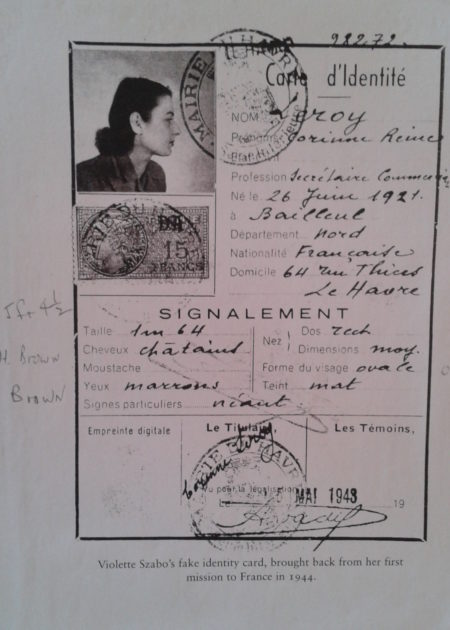 98272.
Carte d'Identité
NOM Leroy
Prénoms Corinne Reine
Profession Secrétaire Commerciale
Né le 26 Juin 1921.
à Bailleul
Département nord
Nationalité Française
Domicile 64 rue Thiers
Le Havre
MAIRIE DU HAVRE
15
FRANCS
SIGNALEMENT
Taille 1m 64
Cheveux châtains
Moustache
Yeux marrons
Signes particuliers néant
Nez Dos rect.
Dimensions moy.
Forme du visage ovale
Teint mat
5ft 4½
M. Brown
Brown
Empreinte digitale
Le Titulaire
Les Témoins,
Corinne Leroy
Vu pour la légalisation
Le 15 MAI 1943 19
Violette Szabo's fake identity card, brought back from her first
mission to France in 1944.